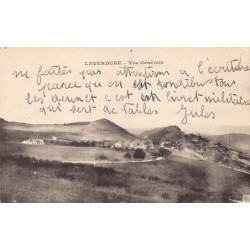 LAVERDURE - Vue Générale
ne faites pas attentions a l'ecriture
parce qu on est tous
les deux et c est un livret militaire
qui sert de tables Jules